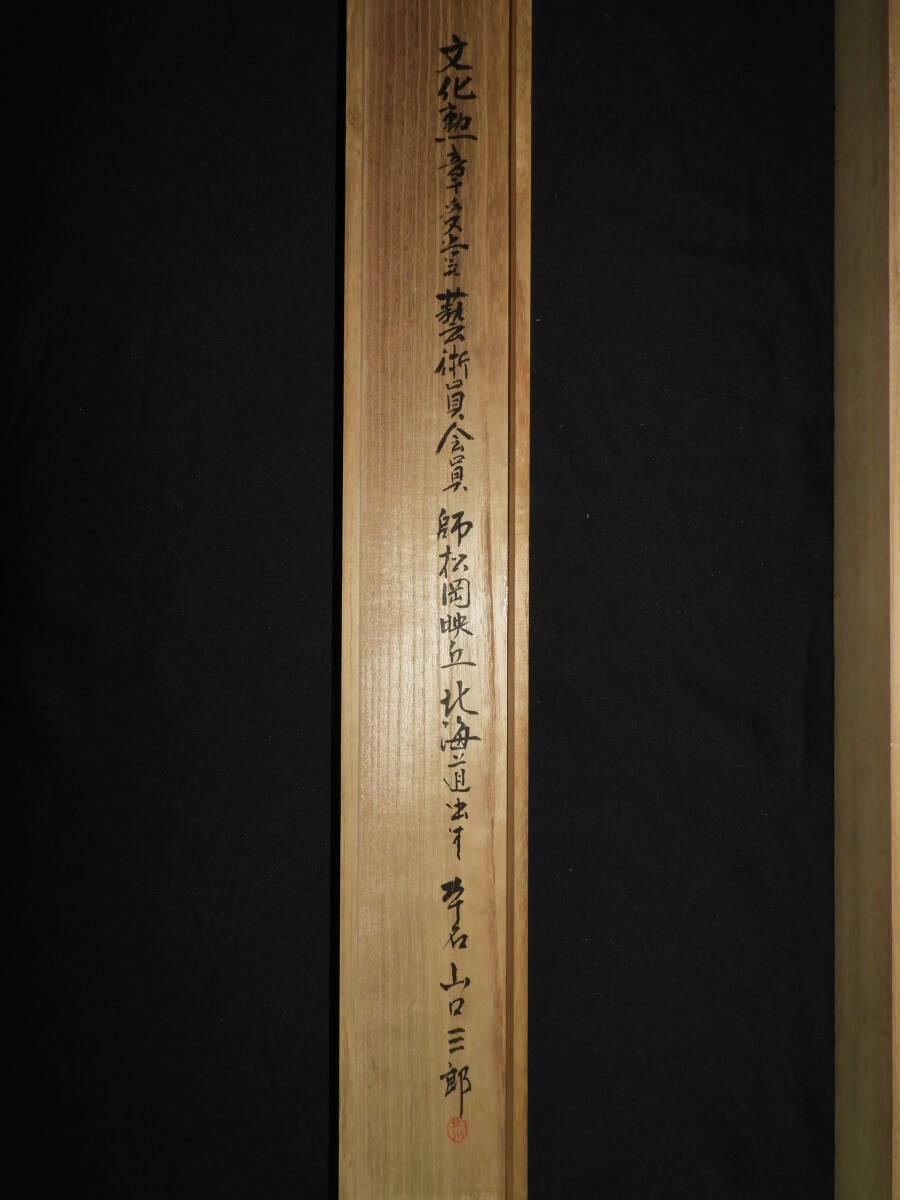 文化勲章受賞 藝術員会員 師松岡映丘 北海道出身 本名 山口三郎